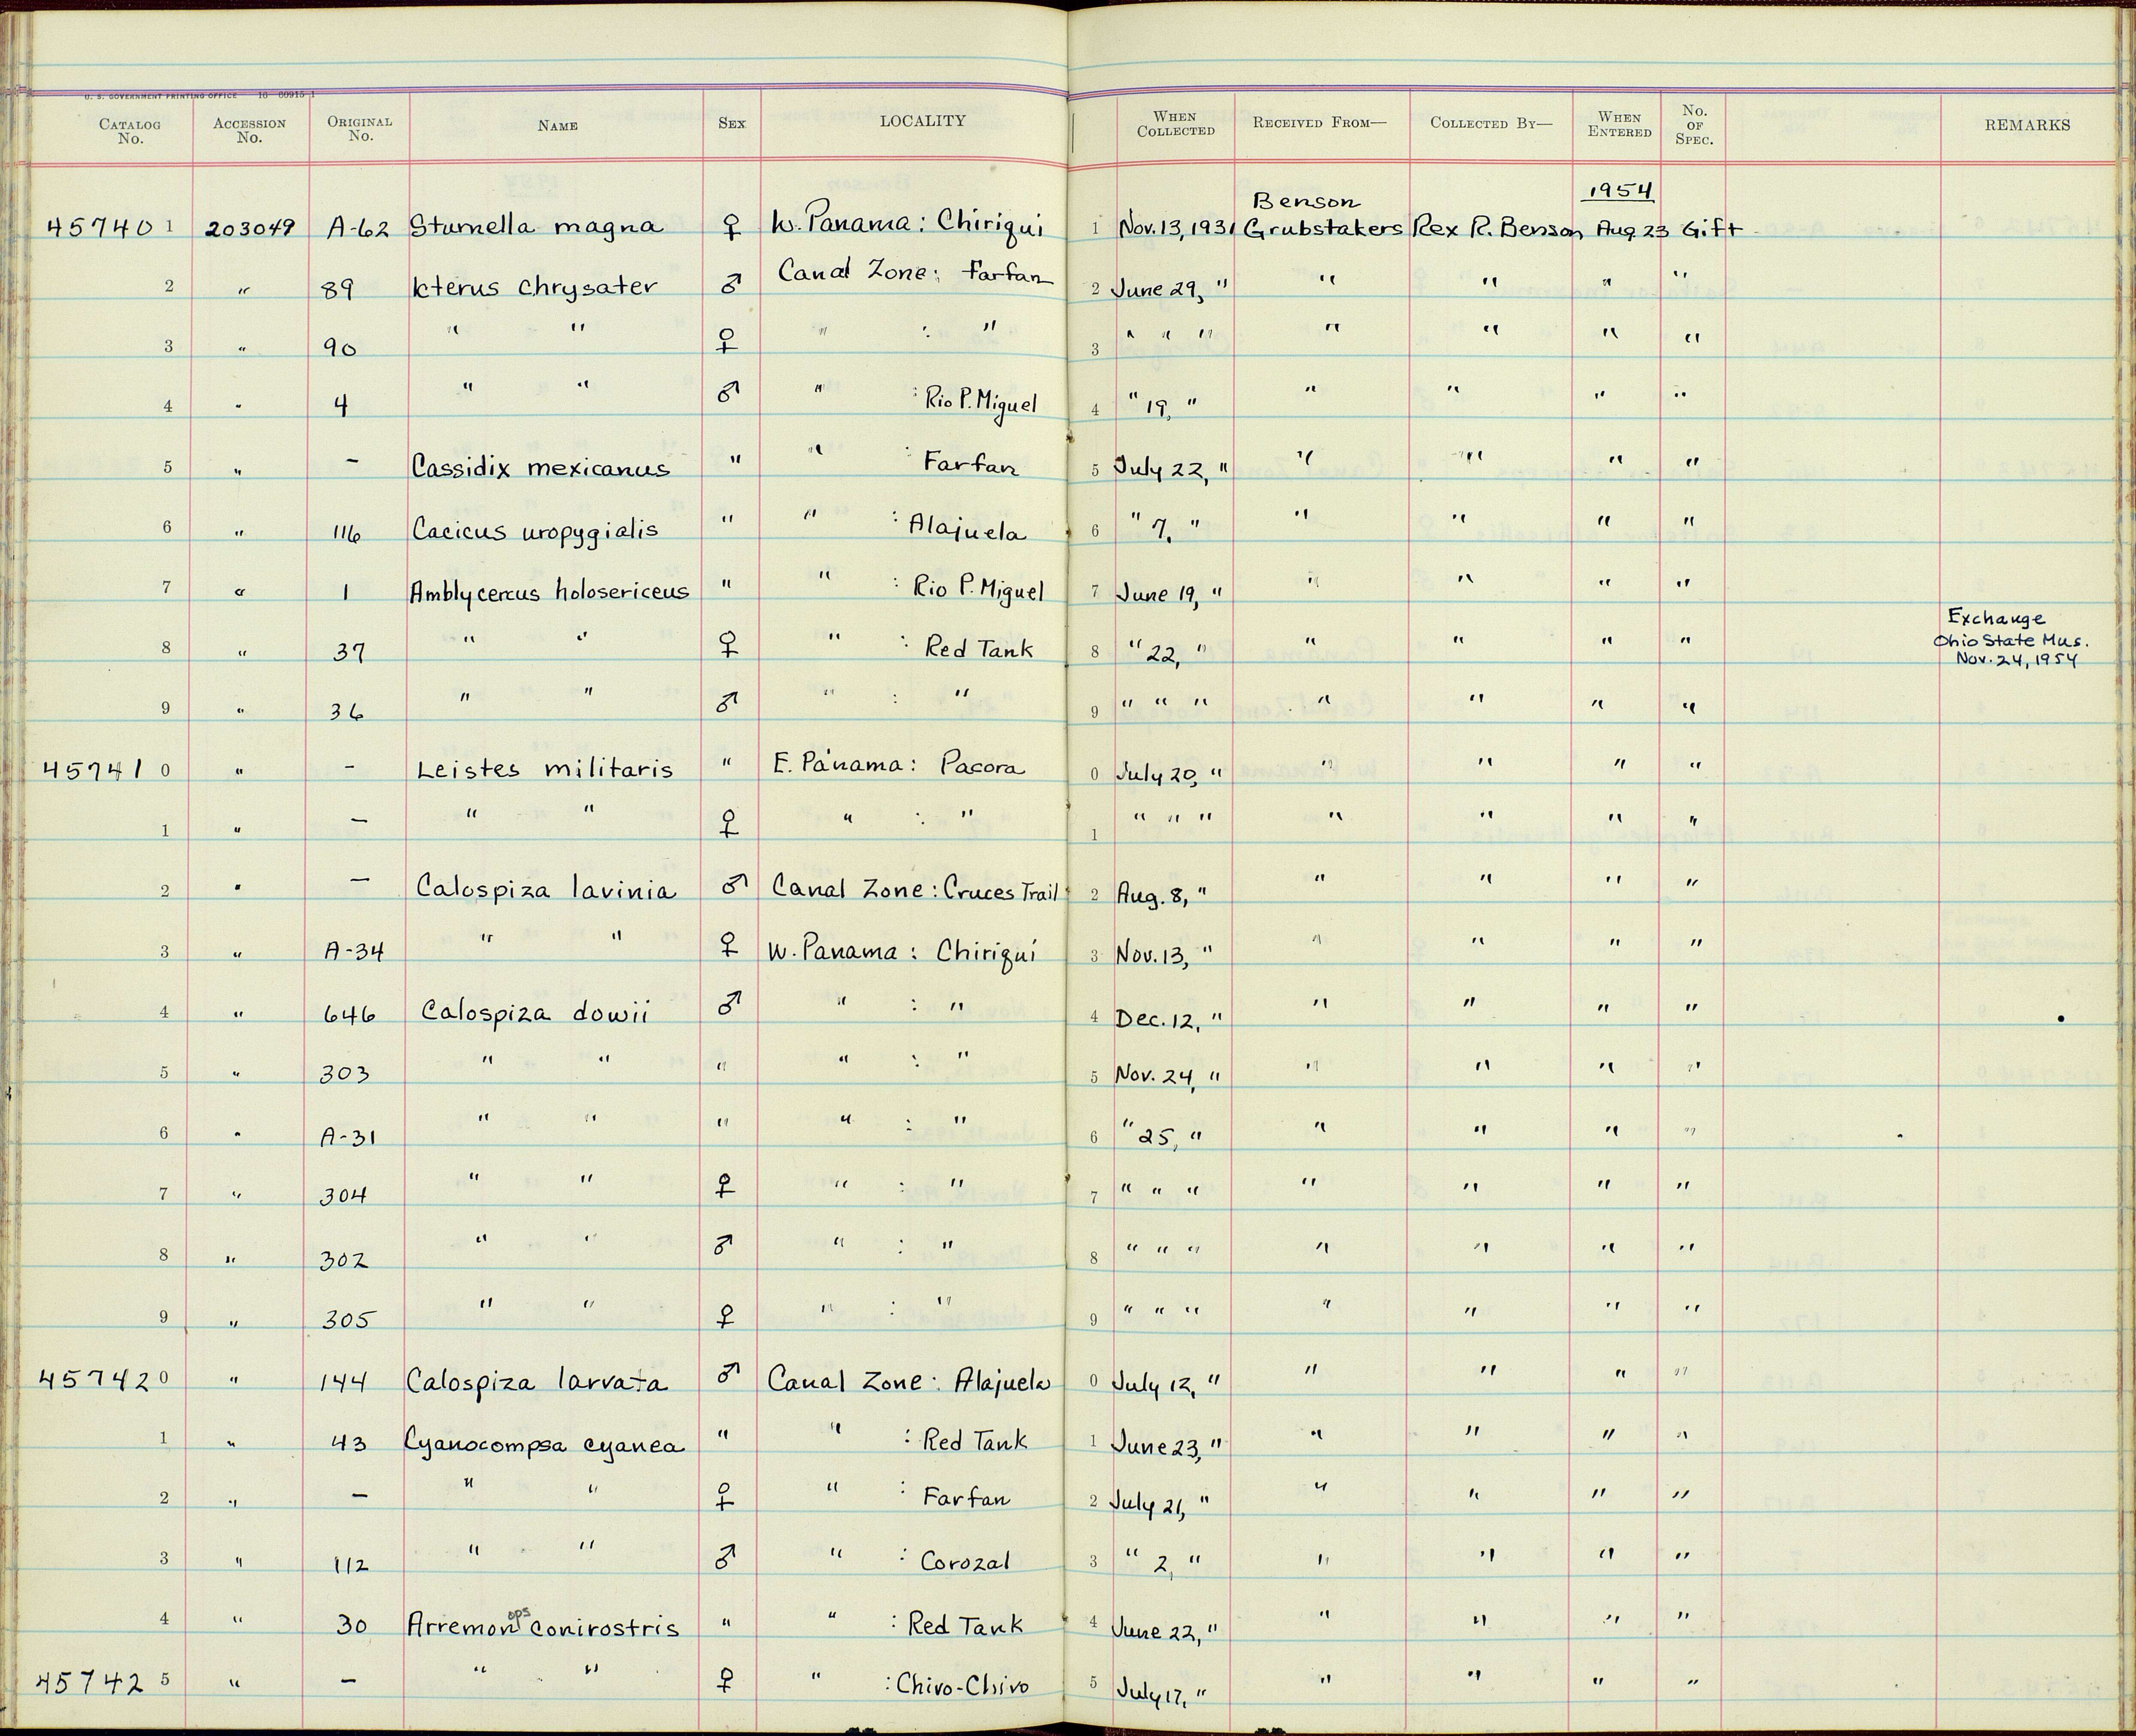 U. S. GOVERNMENT PRINTING OFFICE 16—60915-1
CATALOG No. ACCESSION No. ORIGINAL No. NAME SEX LOCALITY WHEN COLLECTED RECEIVED FROM— COLLECTED BY— WHEN ENTERED No. OF SPEC. REMARKS
1954
457401 203049 A-62 Sturnella magna ♀ W. Panama: Chiriqui 1 Nov. 13, 1931 Benson Grubstakers Rex R. Benson Aug 23 Gift
2 " 89 Icterus chrysater ♂ Canal Zone: Farfan 2 June 29, " " " " "
3 " 90 " " ♀ " : " 3 " " " " " " "
4 " 4 " " ♂ " : Rio P. Miguel 4 " 19, " " " " "
5 " – Cassidix mexicanus " " : Farfan 5 July 22, " " " " "
6 " 116 Cacicus uropygialis " " : Alajuela 6 " 7, " " " " "
7 " 1 Amblycercus holosericeus " " : Rio P. Miguel 7 June 19, " " " " "
8 " 37 " " ♀ " : Red Tank 8 " 22, " " " " " Exchange Ohio State Mus. Nov. 24, 1954
9 " 36 " " ♂ " : " 9 " " " " " " "
457410 " – Leistes militaris " E. Panama: Pacora 0 July 20, " " " " "
1 " – " " ♀ " : " 1 " " " " " " "
2 " – Calospiza lavinia ♂ Canal Zone: Cruces Trail 2 Aug. 8, " " " " "
3 " A-34 " " ♀ W. Panama: Chiriqui 3 Nov. 13, " " " " "
4 " 646 Calospiza dowii ♂ " : " 4 Dec. 12, " " " " "
5 " 303 " " " " : " 5 Nov. 24, " " " " "
6 " A-31 " " " " : " 6 " 25, " " " " "
7 " 304 " " ♀ " : " 7 " " " " " " "
8 " 302 " " ♂ " : " 8 " " " " " " "
9 " 305 " " ♀ " : " 9 " " " " " " "
457420 " 144 Calospiza larvata ♂ Canal Zone: Alajuela 0 July 12, " " " " "
1 " 43 Cyanocompsa cyanea " " : Red Tank 1 June 23, " " " " "
2 " – " " ♀ " : Farfan 2 July 21, " " " " "
3 " 112 " " ♂ " : Corozal 3 " 2, " " " " "
4 " 30 Arremonops conirostris " " : Red Tank 4 June 22, " " " " "
457425 " – " " ♀ " : Chivo-Chivo 5 July 17, " " " " "